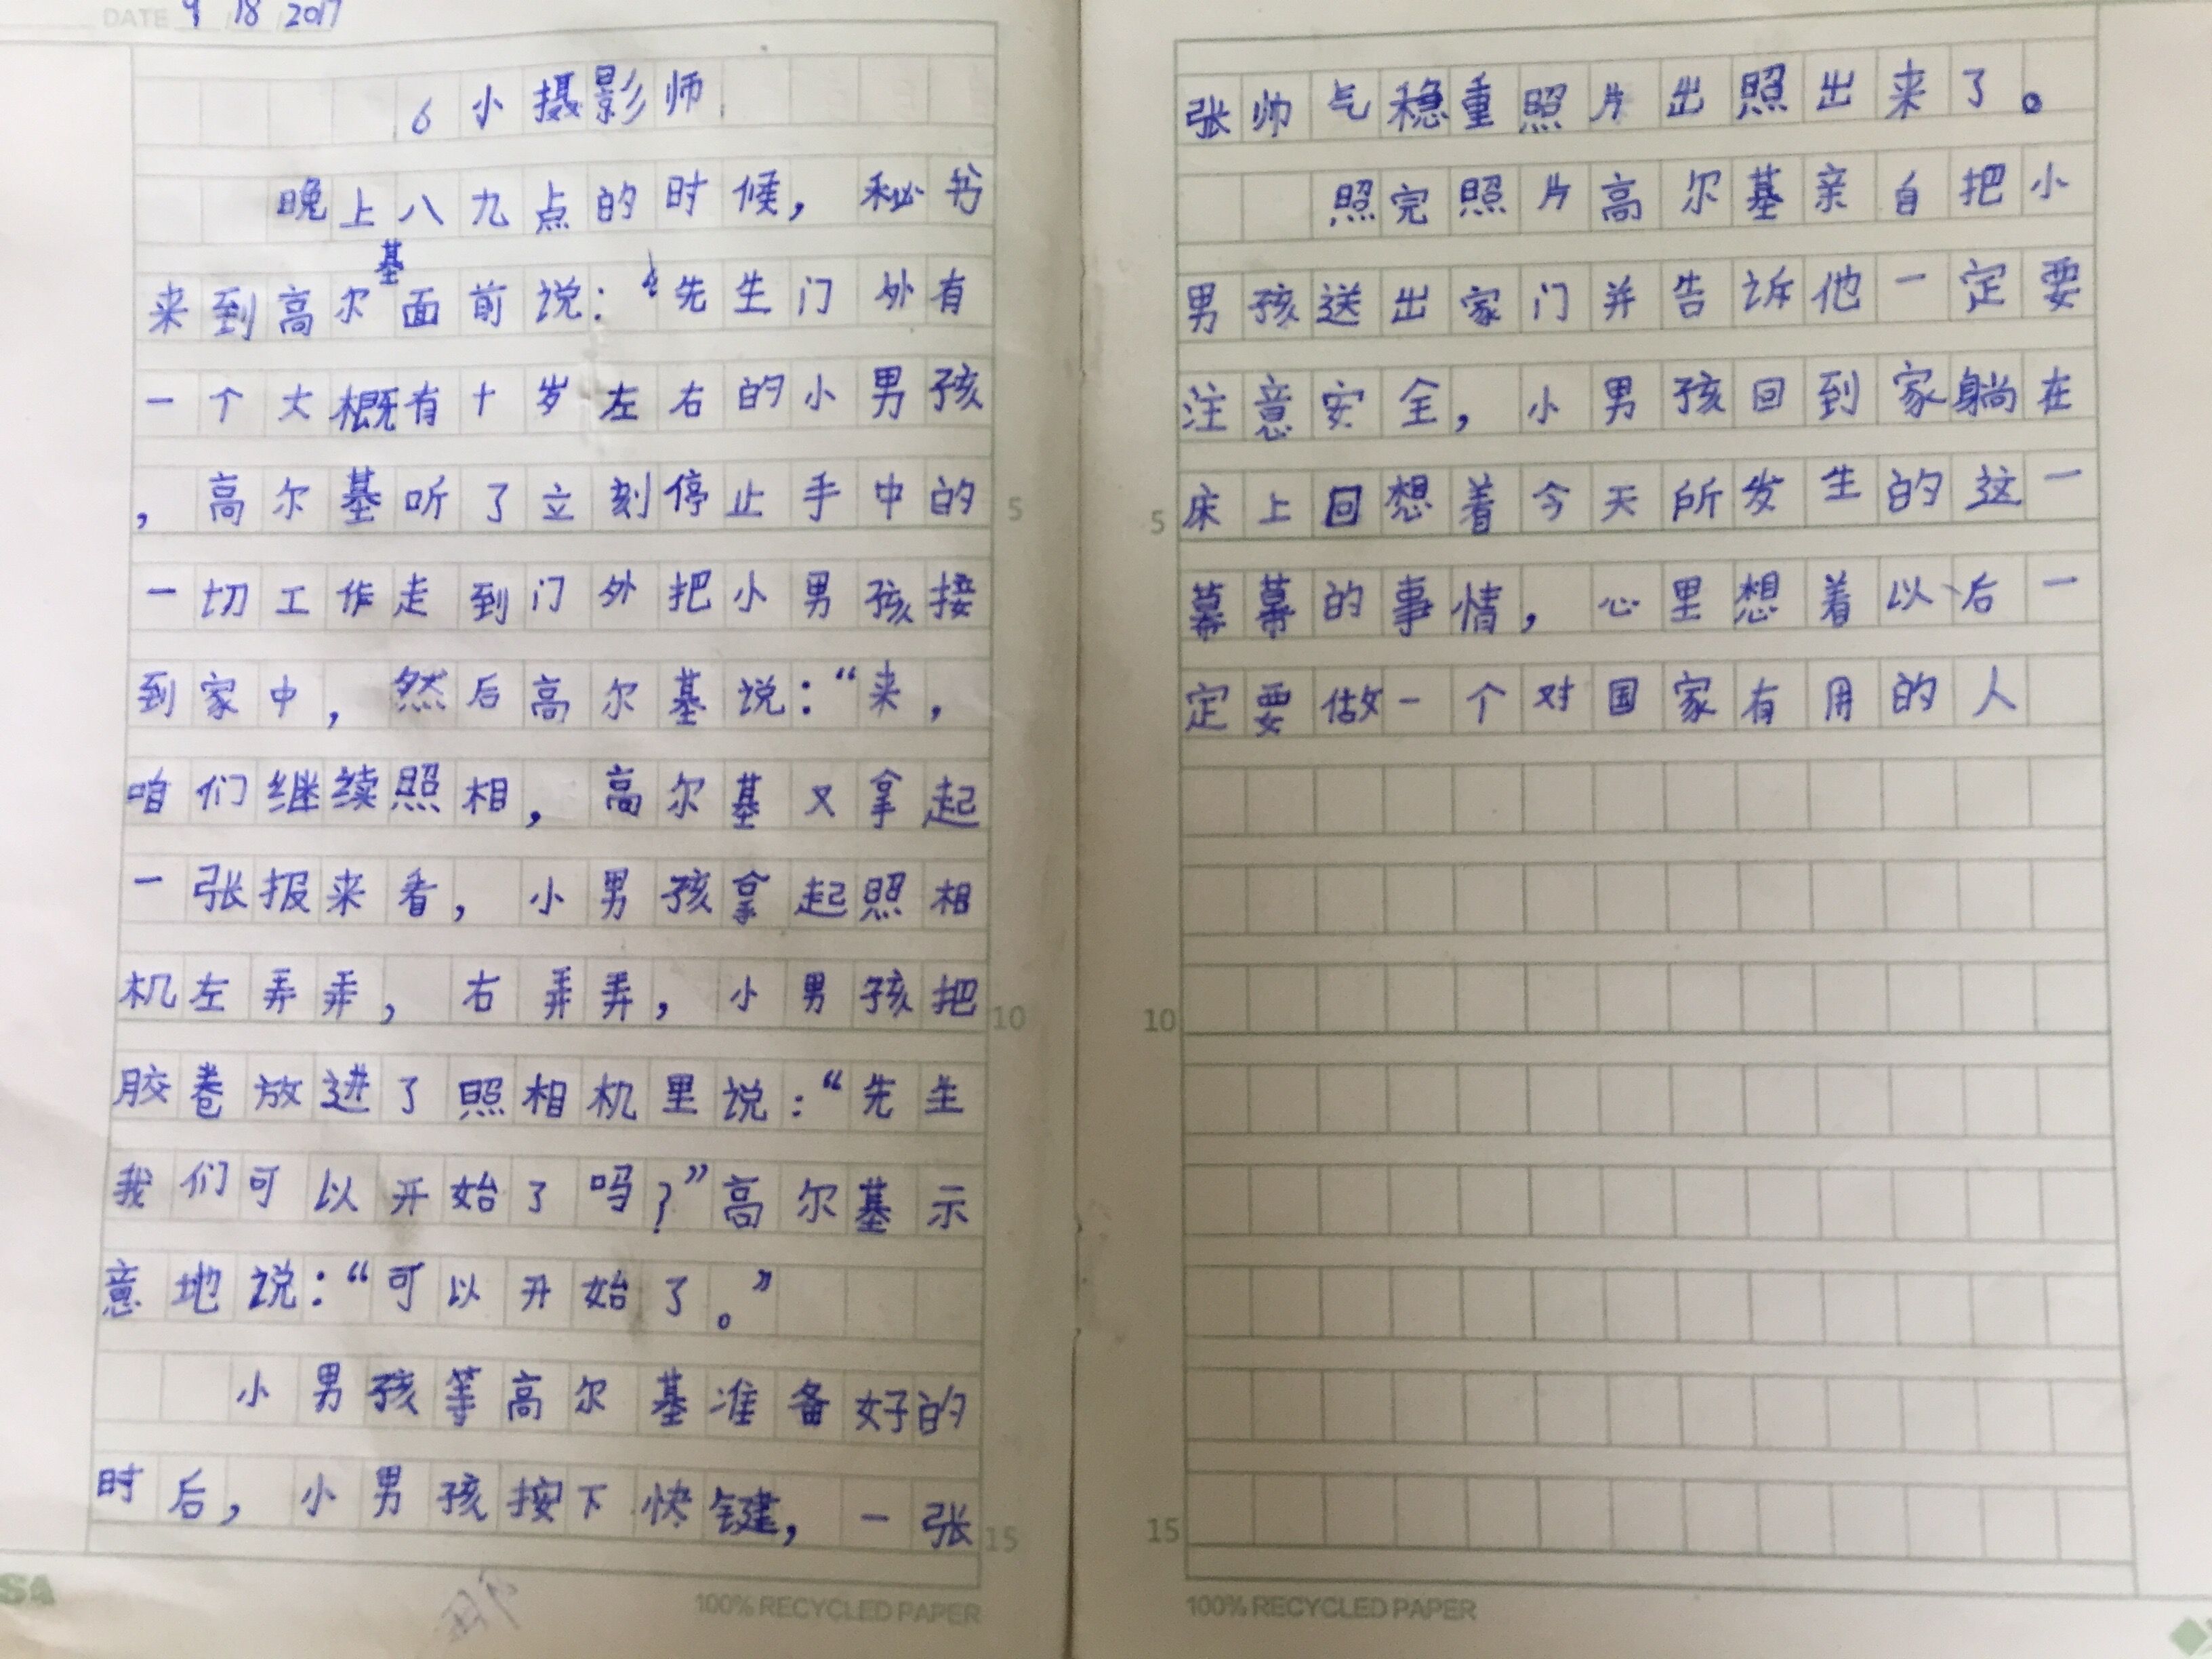 DATE 9 18 2017
6 小摄影师
晚上八九点的时候，秘书
来到高尔基面前说：“先生门外有
一个大概有十岁左右的小男孩
，高尔基听了立刻停止手中的
一切工作走到门外把小男孩接
到家中，然后高尔基说：“来，
咱们继续照相，高尔基又拿起
一张报来看，小男孩拿起照相
机左弄弄，右弄弄，小男孩把
胶卷放进了照相机里说：“先生
我们可以开始了吗？”高尔基示
意地说：“可以开始了。”
小男孩等高尔基准备好的
时后，小男孩按下快键，一张
5
10
15
SA
100% RECYCLED PAPER
张帅气稳重照片出照出来了。
照完照片高尔基亲自把小
男孩送出家门并告诉他一定要
注意安全，小男孩回到家躺在
床上回想着今天所发生的这一
幕幕的事情，心里想着以后一
定要做一个对国家有用的人
5
10
15
100% RECYCLED PAPER